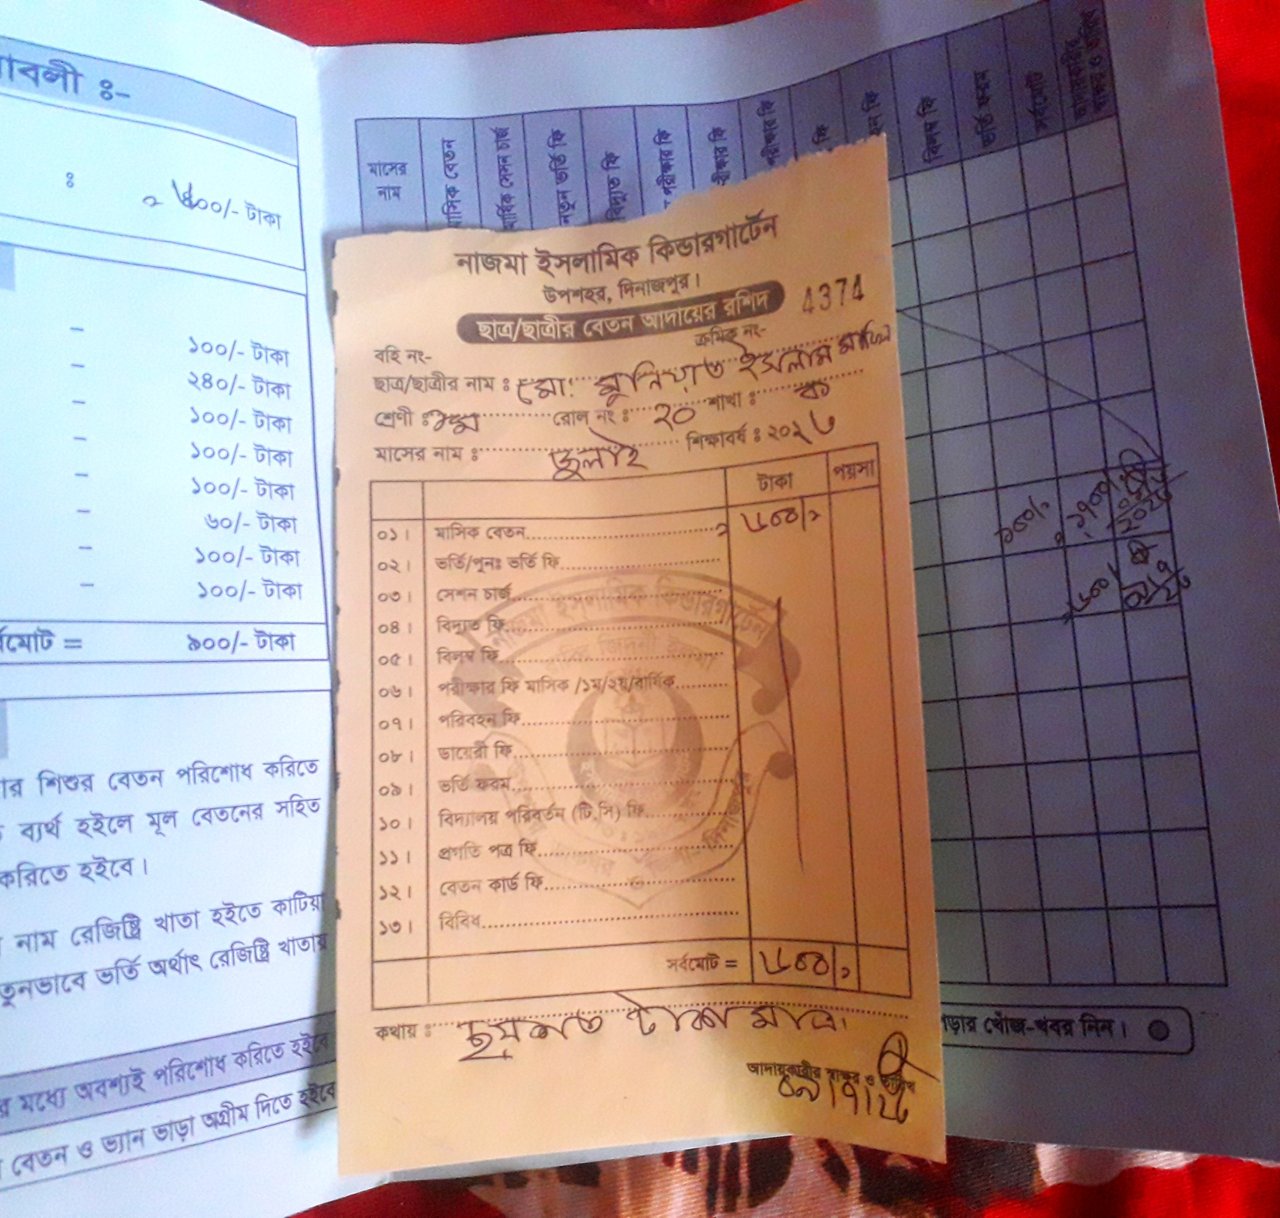 ঃ ৬০০/- টাকা
- ১০০/- টাকা
- ২৪০/- টাকা
- ১০০/- টাকা
- ১০০/- টাকা
- ১০০/- টাকা
- ৬০/- টাকা
- ১০০/- টাকা
- ১০০/- টাকা
= ৯০০/- টাকা
শিশুর বেতন পরিশোধ করিতে
ব্যর্থ হইলে মূল বেতনের সহিত
করিতে হইবে।
নাম রেজিষ্ট্রি খাতা হইতে কাটিয়া
ভর্তি অর্থাৎ রেজিষ্ট্রি খাতায়
মধ্যে অবশ্যই পরিশোধ করিতে হইবে
বেতন ও ভ্যান ভাড়া অগ্রীম দিতে হইবে
মাসের নাম
মাসিক বেতন
বার্ষিক সেসন চার্জ
নতুন ভর্তি ফি
বিদ্যুত ফি
পরীক্ষার ফি
পরীক্ষার ফি
পরীক্ষার ফি
ফি
ফি
বিলম্ব ফি
ভর্তি ফরম
সর্বমোট
নাজমা ইসলামিক কিন্ডারগার্টেন
উপশহর, দিনাজপুর।
ছাত্র/ছাত্রীর বেতন আদায়ের রশিদ
বহি নং- ক্রমিক নং- 4374
ছাত্র/ছাত্রীর নাম ঃ মোঃ ইসলাম
শ্রেণী ঃ রোল নং ঃ ২০ শাখা ঃ ক
মাসের নাম ঃ জুলাই শিক্ষাবর্ষ ঃ ২০২৬
টাকা পয়সা
০১। মাসিক বেতন ৬০০/-
০২। ভর্তি/পুনঃ ভর্তি ফি
০৩। সেশন চার্জ
০৪। বিদ্যুত ফি
০৫। বিলম্ব ফি
০৬। পরীক্ষার ফি মাসিক /১ম/২য়/বার্ষিক
০৭। পরিবহন ফি
০৮। ডায়েরী ফি
০৯। ভর্তি ফরম
১০। বিদ্যালয় পরিবর্তন (টি.সি) ফি
১১। প্রগতি পত্র ফি
১২। বেতন কার্ড ফি
১৩। বিবিধ
সর্বমোট = ৬০০/-
কথায় ঃ ছয়শত টাকা মাত্র।
আদায়কারীর স্বাক্ষর ও তারিখ
খোঁজ-খবর নিন।